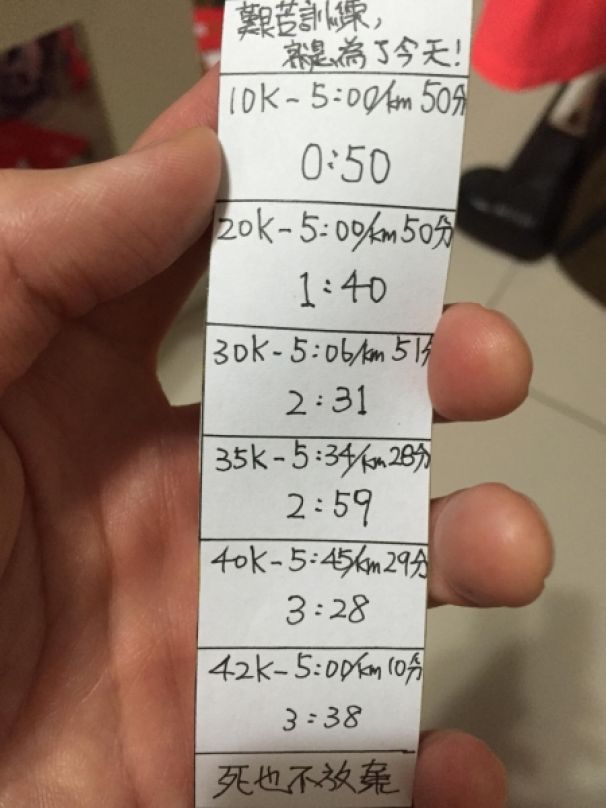 艱苦訓練,
就是為了今天!
10K-5:00/km 50分
0:50
20K-5:00/km 50分
1:40
30K-5:06/km 51分
2:31
35K-5:34/km 28分
2:59
40K-5:45/km 29分
3:28
42K-5:00/km 10分
3:38
死也不放棄